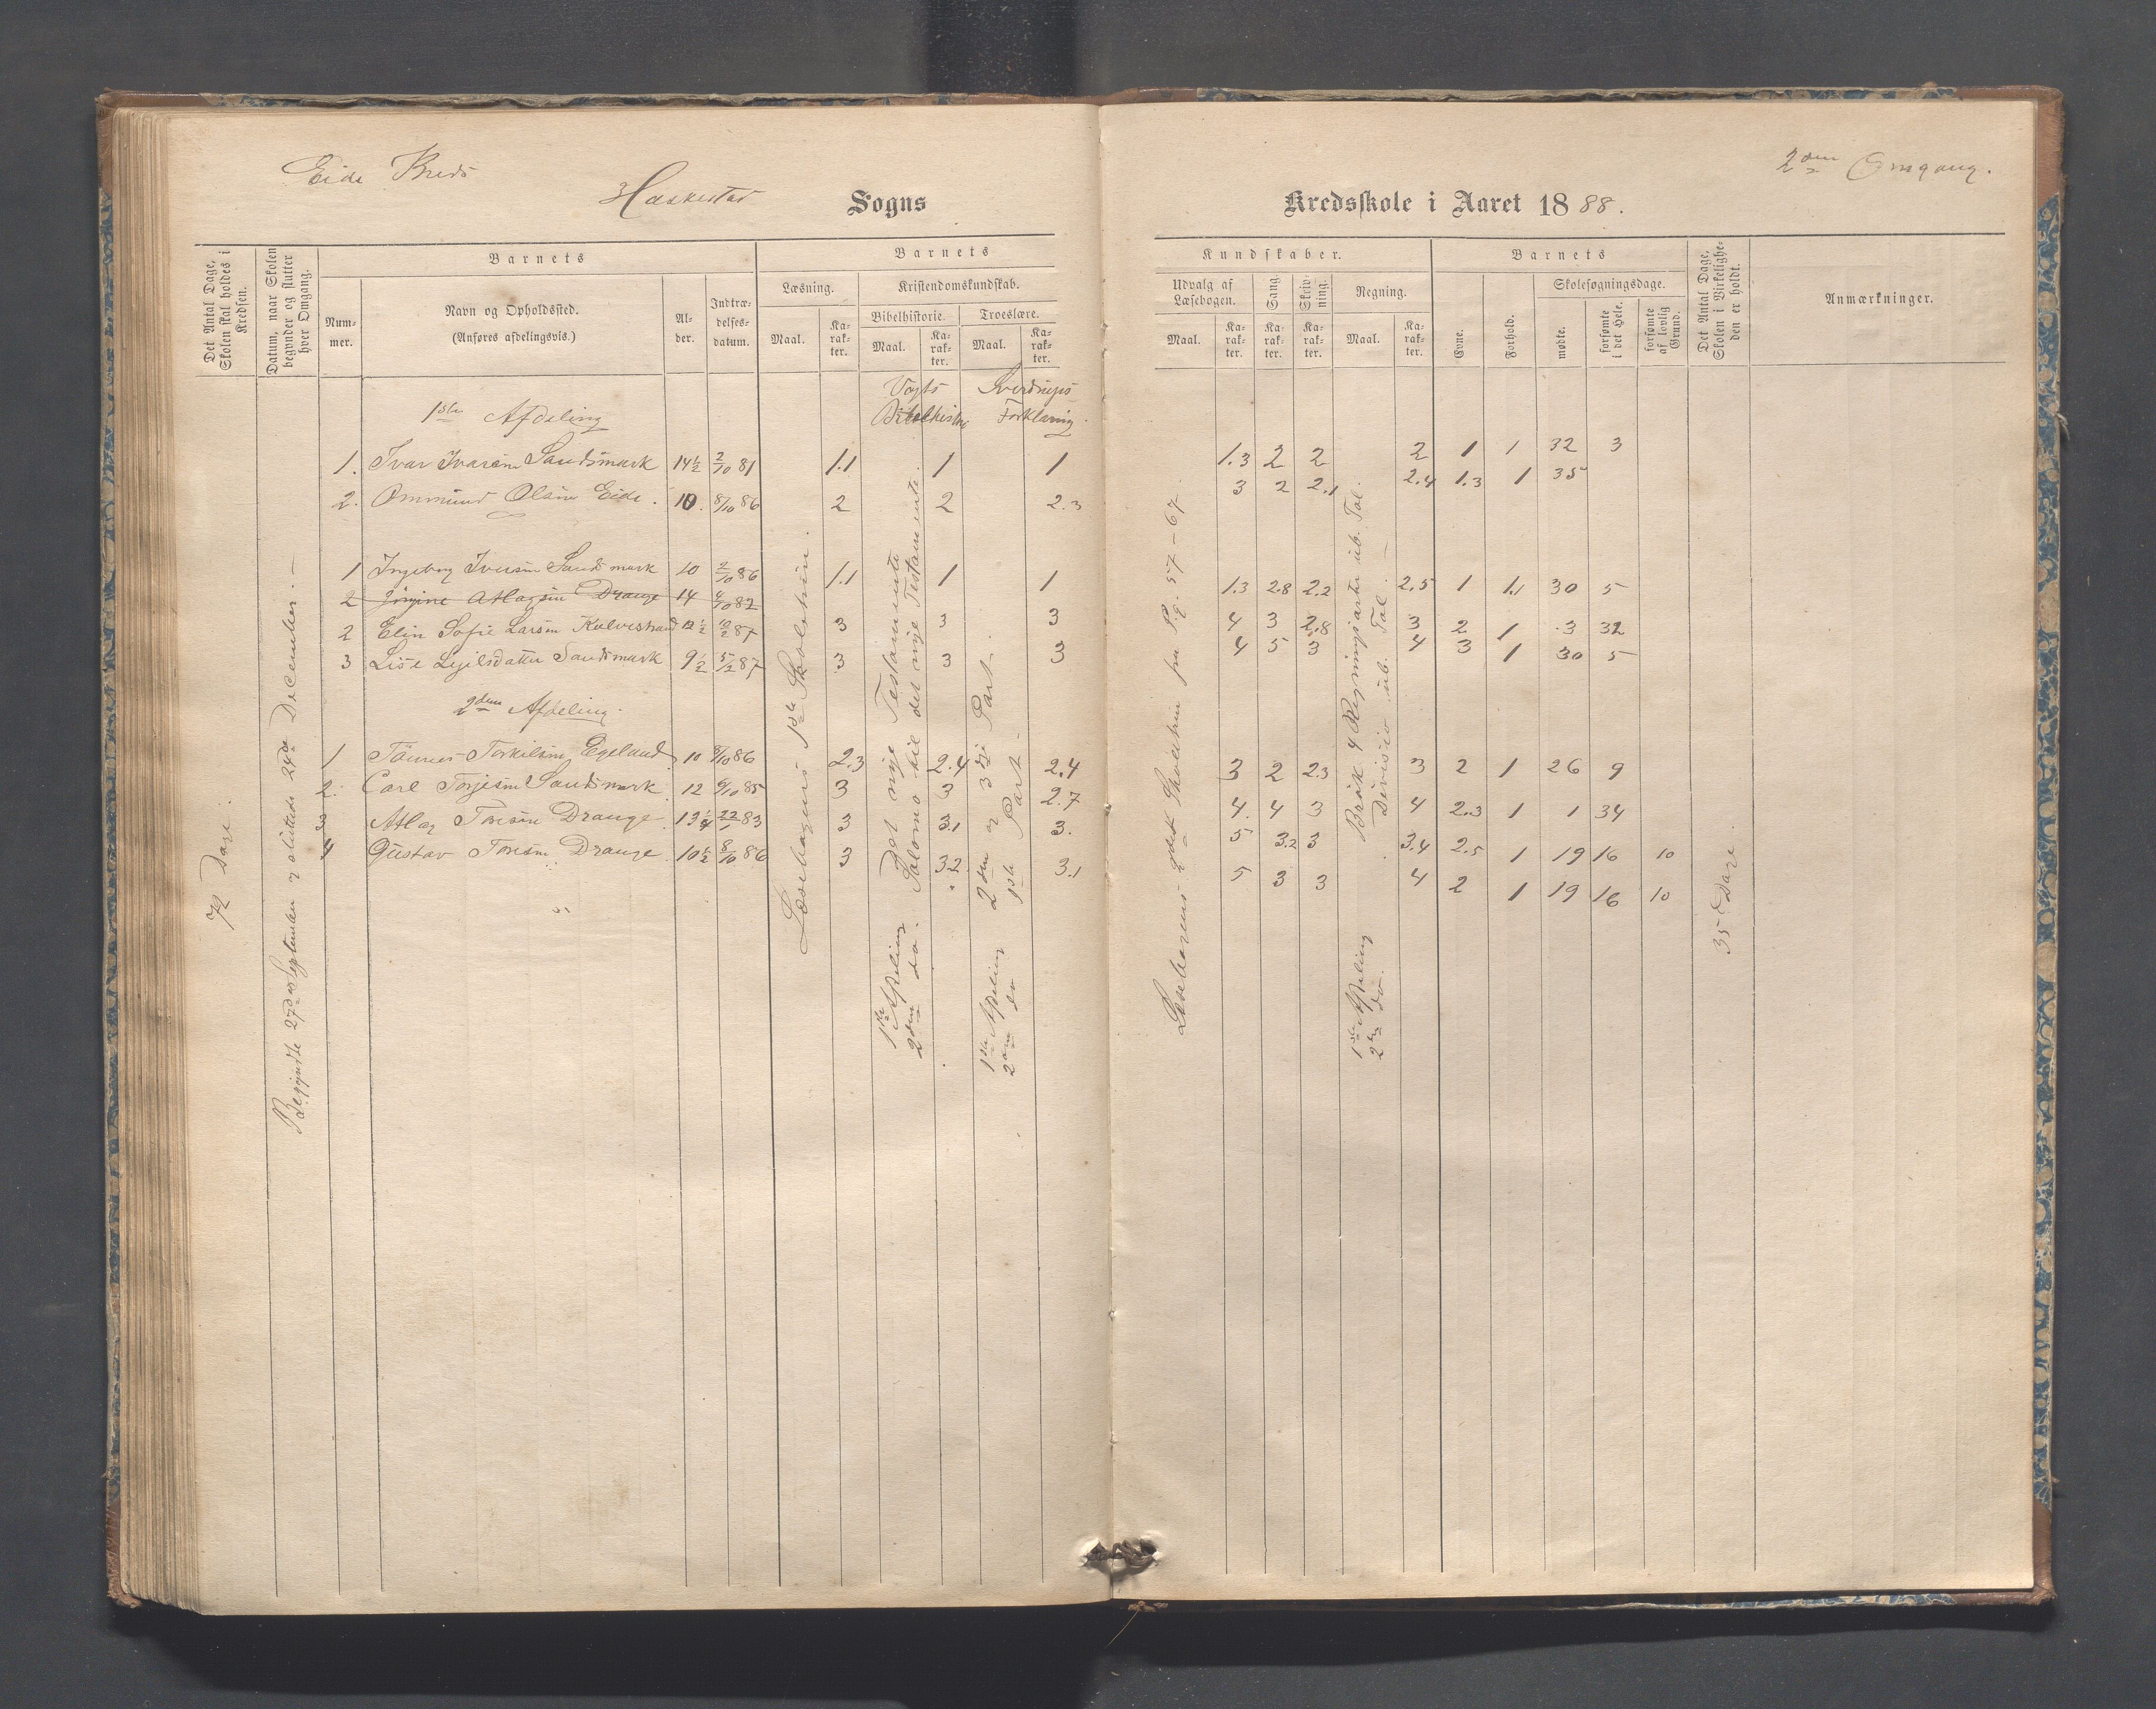 Eide Kreds
Haskestad Sogns
Kredsskole i Aaret 1888.
2den Omgang.
Det Antal Dage, Skolen skal holdes i Kredsen.
Datum, naar Skolen begynder og slutter hver Omgang.
Barnets
Num-mer.
Navn og Opholdssted.
(Anføres afdelingsvis.)
Al-der.
Indtræ-delses-datum.
Barnets
Læsning.
Maal.
Ka-rak-ter.
Kristendomskundskab.
Bibelhistorie.
Maal.
Ka-rak-ter.
Troeslære.
Maal.
Ka-rak-ter.
Kundskaber.
Udvalg af Læsebogen.
Maal.
Ka-rak-ter.
Sang.
Ka-rak-ter.
Skriv-ning.
Ka-rak-ter.
Regning.
Maal.
Ka-rak-ter.
Barnets
Evne.
Forhold.
Skolesøgningsdage.
mødte.
forsømte i det Hele.
forsømte af lovlig Grund.
Det Antal Dage, Skolen i Virkelighe-den er holdt.
Anmærkninger.
Vogts Bibelhistorie
Sverdrups Forklaring.
1ste Afdeling
1. Ivar Ivarsen Sandsmark 14½ 2/10 81 1.1 1 1 1.3 2 2 2 1 1 32 3
2. Ommund Olsen Eide. 10. 8/10 86 2 2 2.3 3 2 2.1 2.4 1.3 1 35
1 Ingeborg Iversen Sandsmark 10 2/10 86 1.1 1 1 1.3 2.8 2.2 2.5 1 1.1 30 5
2 Jörgine Atlagsen Drange 14 4/10 82
2 Elin Sofie Larsen Kalvestrand 12½ 10/2 87 3 3 3 4 3 2.8 3 2 1 3 32
3 Lise Lejilsdatter Sandsmark 9½ 5/2 87 3 3 3 4 5 3 4 3 1 30 5
2den Afdeling.
1 Tönnes Torkilsen Egeland 10 8/10 86 2.3 2.4 2.4 3 2 2.3 3 2 1 26 9
2. Carl Torjesen Sandsmark 12 6/10 85 3 3 2.7 4. 4 3 4 2.3 1 1 34
3 Atlag Toresen Drange 13¼ 22/1 83 3 3.1 3. 5 3.2 3 3.4 2.5 1 19 16 10
4 Gustav Toresen Drange 10½ 8/10 86 3 3.2 3.1 5 3 3 4 2 1 19 16 10
72 Dage.
Begyndte 27de September og sluttede 24de December.
Læsebogens 1ste Skoletrin.
1ste Afdeling Det nye Testamente
2den do. Salomo til det nye Testamente.
1ste Afdeling 2den og 3die Part.
2den do 1ste Part
Læsebogens 2det Skoletrin fra Pg. 57-67.
1ste Afdeling Brök 4 Regningsarter ub. Tal.
2den do. Division ub. Tal.
35 Dage.